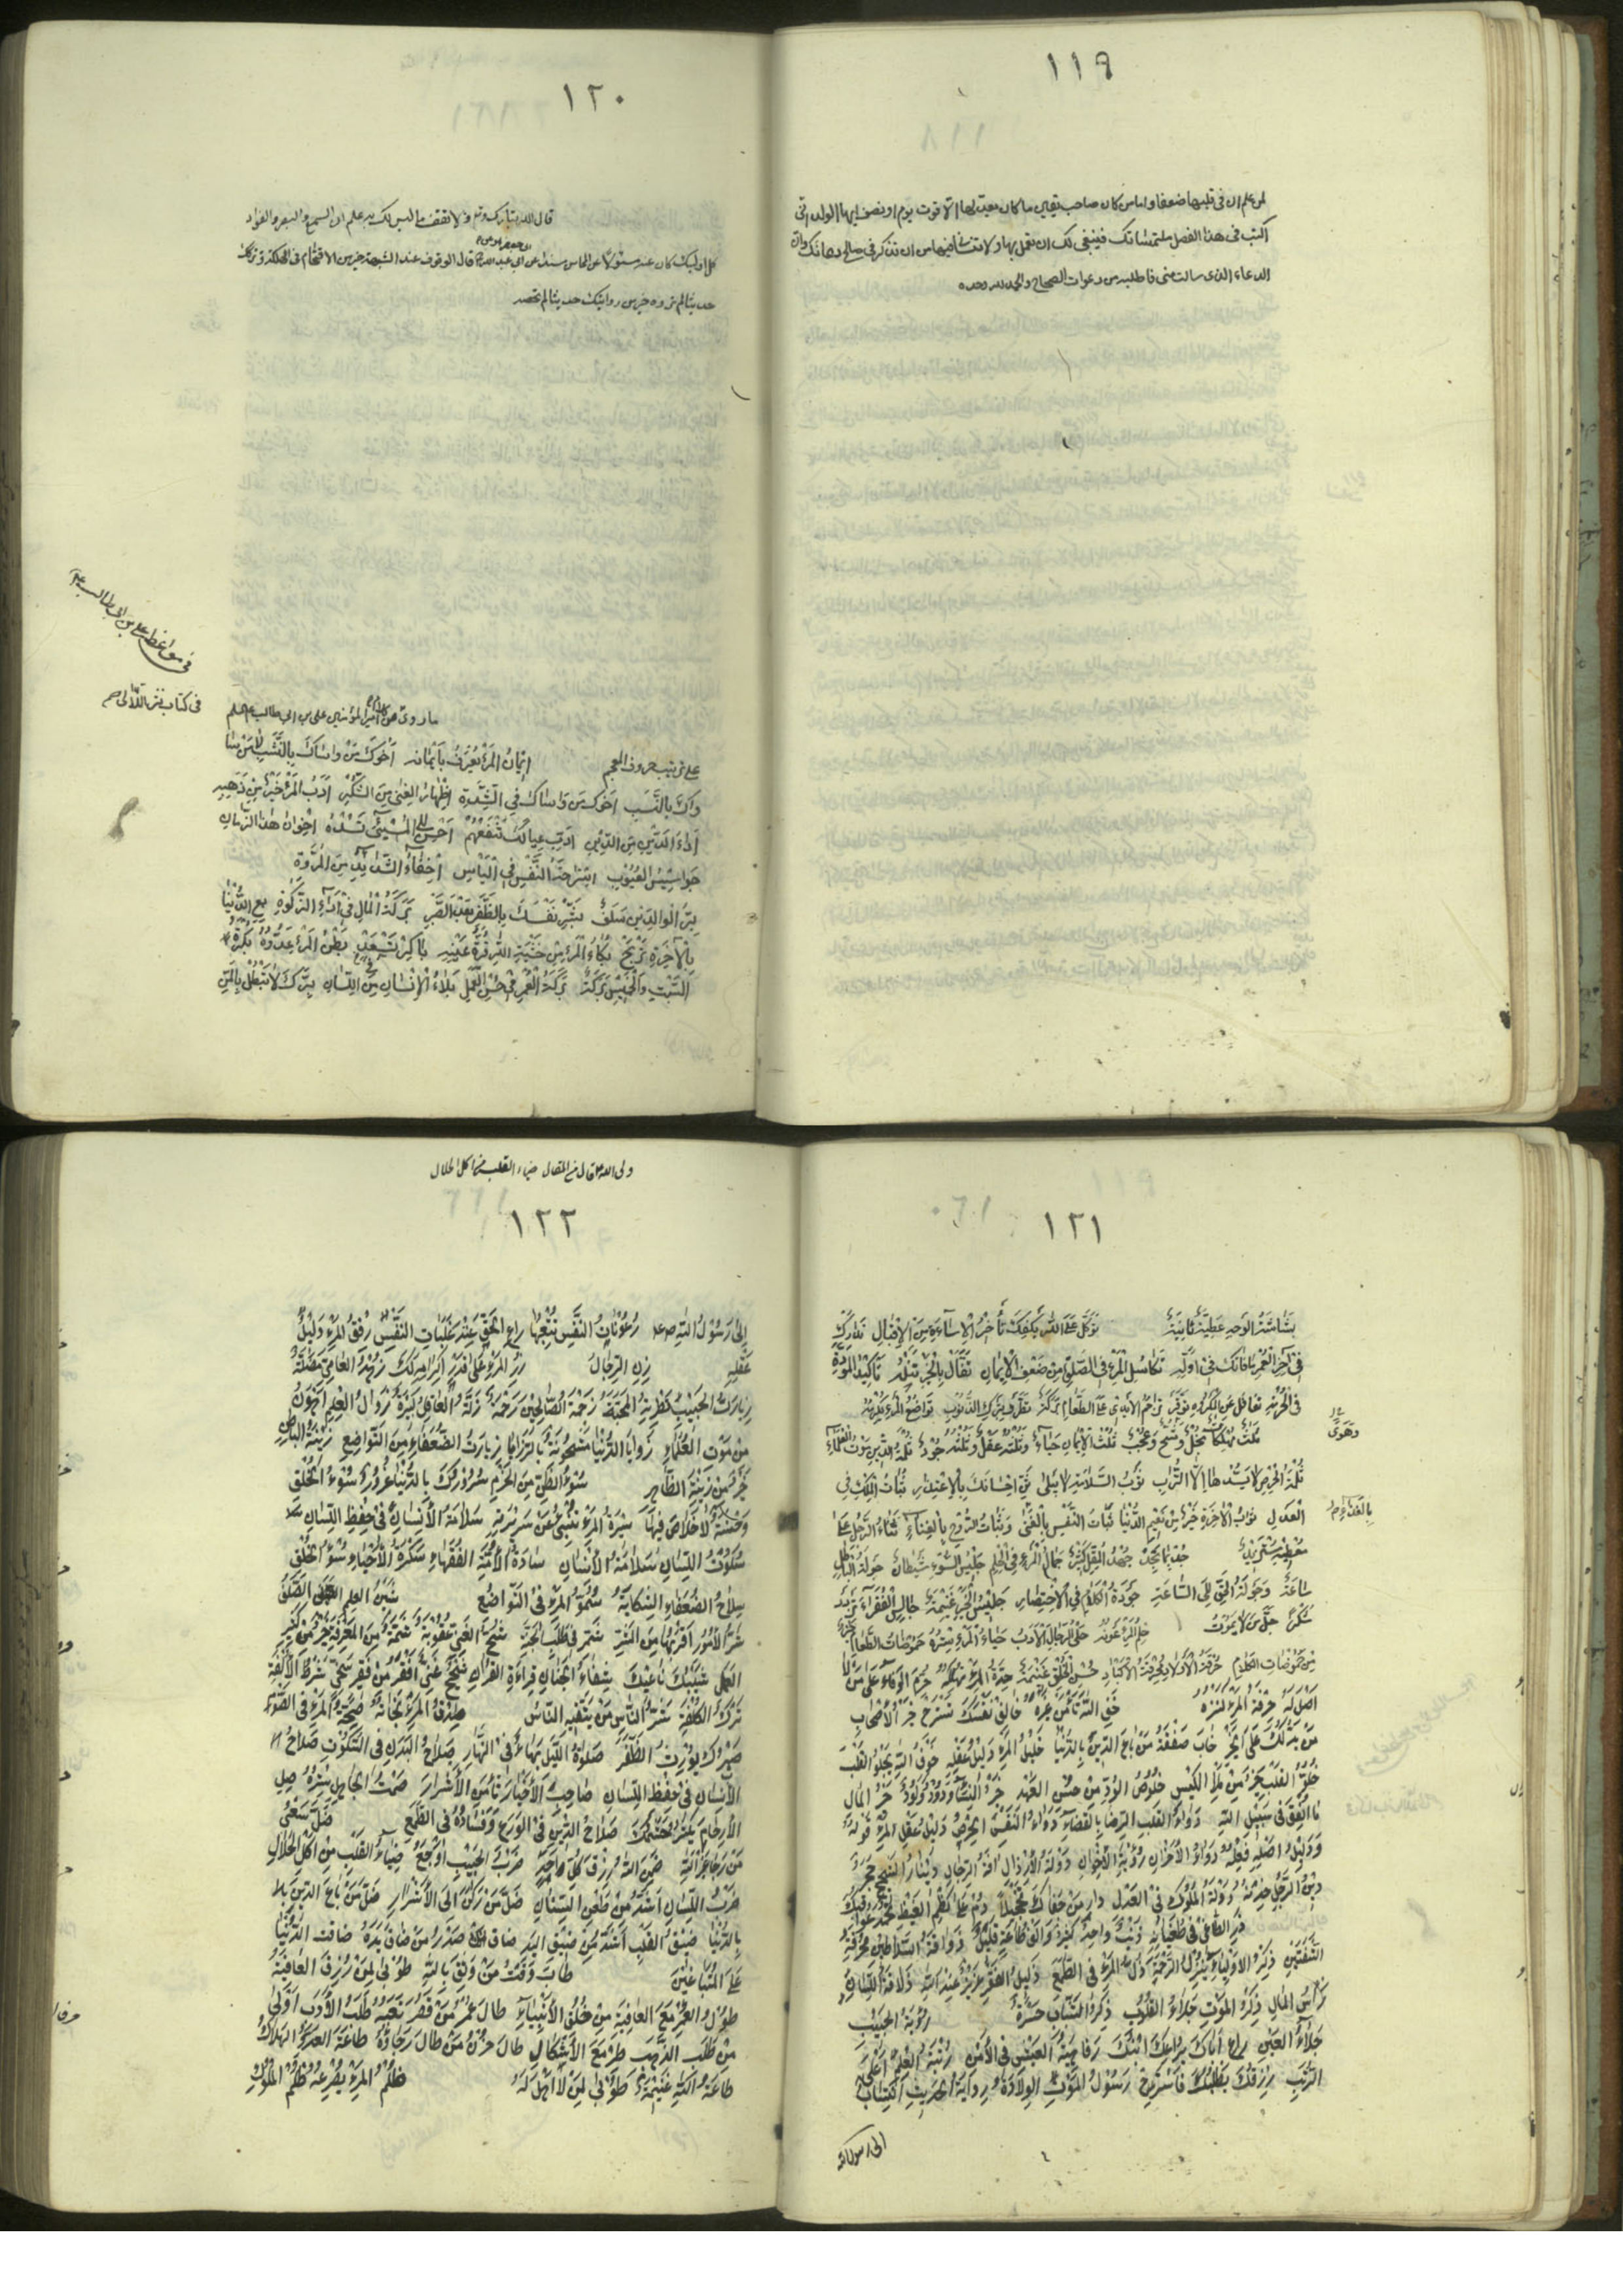 ١١٩
لمن علم ان فى قلبها ضعفا واما من كان صاحب يقين ما كان يعد لها الا قوت يوم او نصف ايها الولد انى
اكتب فى هذا الفصل ملتمساتك فينبغى لك ان تعمل بها ولا تنسانى فيها من ان تذكرنى فى صالح دعائك واما
الدعاء الذى سالت منى فاطلبه من دعوات الصحاح والحمد لله وحده
١٢٠
قال الله تبارك وتع ولا تقف ما ليس لك به علم ان السمع والبصر والفواد
كل اولئك كان عنه مسئولا عن ابى عبد الله قال الوقوف عند الشبهة خير من الاقتحام فى الهلكة وتركك
حديثا لم تروه خير من روايتك حديثا لم تحصه
فى مواعظ على بن ابى طالب ع
فى كتاب نثر اللآلى
ما روى عن امير المؤمنين على بن ابى طالب
على ترتيب حروف المعجم اِيْمَانُ المَرْءِ يُعْرَفُ بِأَيْمَانِهِ اَخُوكَ مَنْ وَاسَاكَ بِالنَّشَبِ لَا مَنْ سَا
وَاكَ بِالنَّسَبِ اَخُوكَ مَنْ وَاسَاكَ فِي الشِّدَّةِ اِظْهَارُ الغِنٰى مِنَ الشُّكْرِ اَدَبُ المَرْءِ خَيْرٌ مِنْ ذَهَبِهِ
اَدَاءُ الدَّيْنِ مِنَ الدِّيْنِ اَدِّبْ عِيالَكَ تَنْفَعْهُمْ اَحْسِنْ اِلى المُسِيْئِ تَسُدْهُ اِخْوانُ هٰذا الزَّمَانِ
جَواسِيْسُ العُيُوْبِ اِسْتِرَاحَةُ النَّفْسِ فِي الْيَأْسِ اِخْفَاءُ الشَّدائِدِ مِنَ المُرُوَّةِ
بِرُّ الْوالِدَيْنِ سَلَفٌ بَشِّرْ نَفْسَكَ بِالظَّفَرِ بَعْدَ الصَّبْرِ بَرَكَةُ الْمالِ فِيْ اَدَآءِ الزَّكٰوةِ بِعِ الدُّنْيا
بِالْآخِرَةِ تَرْبَحْ بُكَاءُ المَرْءِ مِنْ خَشْيَةِ اللّٰهِ قُرَّةُ عَيْنِهِ بَاكِرْ تَسْعَدْ بَطْنُ المَرْءِ عَدُوُّهُ بُكْرَةُ
السَّبْتِ وَالْخَمِيْسِ بَرَكَةٌ بَرَكَةُ الْعُمْرِ فِيْ حُسْنِ الْعَمَلِ بَلاءُ الْاِنْسَانِ مِنَ اللِّسَانِ بِرَّكَ لَا تُبْطِلْ بِالْمَنِّ
١٢١
بَشَاشَةُ الْوَجْهِ عَطِيَّةٌ ثَانِيَةٌ تَوَكَّلْ عَلَى اللّٰهِ يَكْفِكَ تَأْخِيْرُ الْاِسَاءَةِ مِنَ الْاِقْبَالِ تَدَارَكْ
فِيْ آخِرِ الْعُمْرِ مَا فَاتَكَ فِيْ اَوَّلِهِ تَكَاسُلُ الْمَرْءِ فِي الصَّلٰوةِ مِنْ ضَعْفِ الْاِيْمَانِ تَفَأَّلْ بِالْخَيْرِ تَنَلْهُ تَأْكِيْدُ الْمَوَدَّةِ
فِي الْحُرْمَةِ تَغَافَلْ عَنِ الْمَكْرُوْهِ تُوَقَّرْ تَزَاحُمُ الْاَيْدِيْ عَلَى الطَّعَامِ بَرَكَةٌ تَطَرَّفْ بِتَرْكِ الذُّنُوْبِ تَوَاضُعُ الْمَرْءِ يُكْرِمُهُ
ثَلَاثٌ مُهْلِكَاتٌ بُخْلٌ وَشُحٌّ وَعُجْبٌ ثُلُثُ الْاِيْمَانِ حَيَاءٌ وَثُلُثُهُ عَقْلٌ وَثُلُثُهُ جُوْدٌ ثُلْمَةُ الدِّيْنِ مَوْتُ الْعُلَمَآءِ
وَهَوًى
ثُلْمَةُ الْحِرْصِ لَا يَسُدُّهَا اِلَّا التُّرَابُ ثَوْبُ السَّلَامَةِ لَا يَبْلٰى ثَنِّ اِحْسَانَكَ بِالْاِعْتِذَارِ ثَبَاتُ الْمُلْكِ فِي
بِالغذاء
الْعَدْلِ ثَوَابُ الْآخِرَةِ خَيْرٌ مِنْ نَعِيْمِ الدُّنْيَا ثَبَاتُ النَّفْسِ بِالْغِنٰى وَثَبَاتُ الرُّوْحِ بِالْغِنَاءِ ثَنَاءُ الرَّجُلِ عَلٰى
مُعْطِيْهِ مُسْتَزِيْدٌ جُدْ بِمَا تَجِدْ جُهْدُ الْمُقِلِّ كَثِيْرٌ جَمَالُ الْمَرْءِ فِي الْحِلْمِ جَلِيْسُ السُّوْءِ شَيْطَانٌ جَوْلَةُ الْبَاطِلِ
سَاعَةٌ وَجَوْلَةُ الْحَقِّ اِلَى السَّاعَةِ جَوْدَةُ الْكَلَامِ فِي الْاِخْتِصَارِ جَلِيْسُ الْخَيْرِ غَنِيْمَةٌ جَالِسِ الْفُقَرَآءَ تَزْدَدْ
شُكْرًا جَلَّ مَنْ لَا يَمُوْتُ حِلْمُ الْمَرْءِ عَوْنُهُ حُلِيُّ الرِّجَالِ الْاَدَبُ حَيَاءُ الْمَرْءِ سِتْرُهُ حُمُوْضَاتُ الطَّعَامِ خَيْرٌ
مِنْ حُمُوْضَاتِ الْكَلَامِ حُرْقَةُ الْاَوْلَادِ مُحْرِقَةُ الْاَكْبَادِ حُسْنُ الْخُلْقِ غَنِيْمَةٌ حِدَّةُ الْمَرْءِ تُهْلِكُهُ حُرِمَ الْوَفَاءُ عَلٰى مَنْ لَا
اَصْلَ لَهُ حِرْفَةُ الْمَرْءِ كَنْزُهُ خَفِ اللّٰهَ تَأْمَنْ غَيْرَهُ خَالِفْ نَفْسَكَ تَسْتَرِحْ خَيْرُ الْاَصْحَابِ
مَنْ يَدُلُّكَ عَلَى الْخَيْرِ خَابَ صَفْقَةُ مَنْ بَاعَ الدِّيْنَ بِالدُّنْيَا خَلِيْلُ الْمَرْءِ دَلِيْلُ عَقْلِهِ خَوْفُ اللّٰهِ يَجْلُو الْقَلْبَ
خُلُوُّ الْقَلْبِ خَيْرٌ مِنْ مَلْأِ الْكِيْسِ خُلُوْصُ الْوُدِّ مِنْ حُسْنِ الْعَهْدِ خَيْرُ النِّسَآءِ وَدُوْدٌ وَلُوْدٌ خَيْرُ الْمَالِ
مَا اُنْفِقَ فِيْ سَبِيْلِ اللّٰهِ دَوَاءُ الْقَلْبِ الرِّضَا بِالْقَضَآءِ دَاءُ النَّفْسِ الْحِرْصُ دَلِيْلُ عَقْلِ الْمَرْءِ قَوْلُهُ
وَدَلِيْلُ اَصْلِهِ فِعْلُهُ دَوَامُ السُّرُوْرِ رُؤْيَةُ الْاِخْوَانِ دَوْلَةُ الْاَرْذَالِ آفَةُ الرِّجَالِ دِيْنَارُ الشَّحِيْحِ حَجَرٌ
دِيْنُ الرَّجُلِ حَدِيْثُهُ دَوْلَةُ الْمُلُوْكِ فِي الْعَدْلِ دَارِ مَنْ جَفَاكَ تَخْجِيْلًا دُمْ عَلٰى كَظْمِ الْغَيْظِ تُحْمَدْ عَوَاقِبُكَ
ذَرِ الطَّاغِيَ فِيْ طُغْيَانِهِ ذَنْبٌ وَاحِدٌ كَثِيْرٌ وَاَلْفُ طَاعَةٍ قَلِيْلٌ ذَوَاقَةُ السَّلَاطِيْنِ مُحْرِقَةُ
الشَّفَتَيْنِ ذِكْرُ الْاَوْلِيَاءِ يُنْزِلُ الرَّحْمَةَ ذُلُّ الْمَرْءِ فِي الطَّمَعِ ذَلِيْلُ الْفَقْرِ عَزِيْزٌ عِنْدَ اللّٰهِ ذَلَاقَةُ اللِّسَانِ
رَأْسُ الْمَالِ ذِكْرُ الْمَوْتِ جَلَاءُ الْقُلُوْبِ ذِكْرُ الشَّبَابِ حَسْرَةٌ رُؤْيَةُ الْحَبِيْبِ
جَلَاءُ الْعَيْنِ رَاعِ اَبَاكَ يُرَاعِكَ ابْنُكَ رَفَاهِيَةُ الْعَيْشِ فِي الْاَمْنِ رُتْبَةُ الْعِلْمِ اَعْلَى
الرُّتَبِ رِزْقُكَ يَطْلُبُكَ فَاسْتَرِحْ رَسُوْلُ الْمَوْتِ الْوِلَادَةُ رِوَايَةُ الْحَدِيْثِ اِنْتِسَابٌ
الى رسول الله
١٢٢
ولى الله قال فى المقال ضياء القلب من اكل الحلال
اِلٰى رَسُوْلِ اللّٰهِ صعم رُعُوْنَاتُ النَّفْسِ تُتْعِبُهَا رَاعِ الْحَقَّ عِنْدَ غَلَبَاتِ النَّفْسِ رِفْقُ الْمَرْءِ دَلِيْلُ
عَقْلِهِ زِنِ الرِّجَالَ زُرِ الْمَرْءَ عَلٰى قَدْرِ اِكْرَامِهِ لَكَ زُهْدُ الْعَامِيِّ مَضَلَّةٌ
زِيَارَةُ الْحَبِيْبِ تَطْرِيَةُ الْمَحَبَّةِ زَحْمَةُ الصَّالِحِيْنَ رَحْمَةٌ زَلَّةُ الْعَاقِلِ كَبِيْرَةٌ زَوَالُ الْعِلْمِ اَهْوَنُ
مِنْ مَوْتِ الْعُلَمَاءِ زَوَايَا الدُّنْيَا مَشْحُوْنَةٌ بِالرَّزَايَا زِيَارَةُ الضُّعَفَاءِ مِنَ التَّوَاضُعِ زِيْنَةُ الْبَاطِنِ
خَيْرٌ مِنْ زِيْنَةِ الظَّاهِرِ سُوْءُ الظَّنِّ مِنَ الْحَزْمِ سُرُوْرُكَ بِالدُّنْيَا غُرُوْرٌ سُوْءُ الْخُلْقِ
وَحْشَةٌ لَا خَلَاصَ فِيْهَا سِيْرَةُ الْمَرْءِ تُنْبِئُ عَنْ سَرِيْرَتِهِ سَلَامَةُ الْاِنْسَانِ فِيْ حِفْظِ اللِّسَانِ
سُكُوْتُ اللِّسَانِ سَلَامَةُ الْاِنْسَانِ سَادَةُ الْاُمَّةِ الْفُقَهَاءِ سَكْرَةُ الْاَحْيَاءِ سُوْءُ الْخُلْقِ
سِلَاحُ الضُّعَفَاءِ الشِّكَايَةُ سُمُوُّ الْمَرْءِ فِي التَّوَاضُعِ شَيْنُ الْعِلْمِ الصَّلَفُ
شَرُّ الْاُمُوْرِ اَقْرَبُهَا مِنَ الشَّرِّ شَمِّرْ فِيْ طَلَبِ الْجَنَّةِ شُحُّ الْغَنِيِّ عُقُوْبَةٌ شَمَّةٌ مِنَ الْمَعْرِفَةِ خَيْرٌ مِنْ كَثِيْرِ
الْعَمَلِ شَيْبُكَ نَاعِيْكَ شِفَاءُ الْجَنَانِ قِرَاءَةُ الْقُرْآنِ شَحِيْحٌ غَنِيٌّ اَفْقَرُ مِنْ فَقِيْرٍ سَخِيٍّ شَرْطُ الْاُلْفَةِ
تَرْكُ الْكُلْفَةِ شَرُّ النَّاسِ مَنْ يَتَّقِيْهِ النَّاسُ صِدْقُ الْمَرْءِ نَجَاتُهُ صِحَّةُ الْمَرْءِ فِي الصَّوْمِ
صَبْرُكَ يُوْرِثُ الظَّفَرَ صَلٰوةُ اللَّيْلِ بَهَاءٌ فِي النَّهَارِ صَلَاحُ الْبَدَنِ فِي السُّكُوْتِ صَلَاحُ
الْاِنْسَانِ فِيْ حِفْظِ اللِّسَانِ صَاحِبِ الْاَخْيَارَ تَأْمَنِ الْاَشْرَارَ صَمْتُ الْجَاهِلِ سِتْرُهُ صِلِ
الْاَرْحَامَ يَكْثُرْ حَشَمُكَ صَلَاحُ الدِّيْنِ فِي الْوَرَعِ وَفَسَادُهُ فِي الطَّمَعِ ضَلَّ سَعْيُ
مَنْ رَجَا غَيْرَ اللّٰهِ ضَمِنَ اللّٰهُ رِزْقَ كُلِّ وَاحِدٍ ضَرْبُ الْحَبِيْبِ اَوْجَعُ ضِيَآءُ الْقَلْبِ مِنْ اَكْلِ الْحَلَالِ
ضَرْبُ اللِّسَانِ اَشَدُّ مِنْ طَعْنِ السِّنَانِ ضَلَّ مَنْ رَكَنَ اِلَى الْاَشْرَارِ ضَلَّ مَنْ بَاعَ الدِّيْنَ
بِالدُّنْيَا ضِيْقُ الْقَلْبِ اَشَدُّ مِنْ ضِيْقِ الْيَدِ ضَاقَ صَدْرُ مَنْ ضَاقَ يَدُهُ ضَاقَتِ الدُّنْيَا
عَلَى الْمُتَبَاغِضَيْنِ طَابَ وَقْتُ مَنْ وَثِقَ بِاللّٰهِ طُوْبٰى لِمَنْ رُزِقَ الْعَافِيَةَ
طُوْلُ الْعُمْرِ مَعَ الْعَافِيَةِ مِنْ خُلُقِ الْاَنْبِيَآءِ طَالَ عُمْرُ مَنْ قَصُرَ تَعَبُهُ طَلَبُ الْاَدَبِ اَوْلٰى
مِنْ طَلَبِ الذَّهَبِ طِرْ مَعَ الْاَشْكَالِ طَالَ حُزْنُ مَنْ طَالَ رَجَاؤُهُ طَاعَةُ الْعَدُوِّ الْهَلَاكُ
طَاعَةُ اللّٰهِ غَنِيْمَةٌ طُوْبٰى لِمَنْ لَا اَهْلَ لَهُ ظُلْمُ الْمَرْءِ يَصْرَعُهُ ظُلْمُ الْمُلُوْكِ